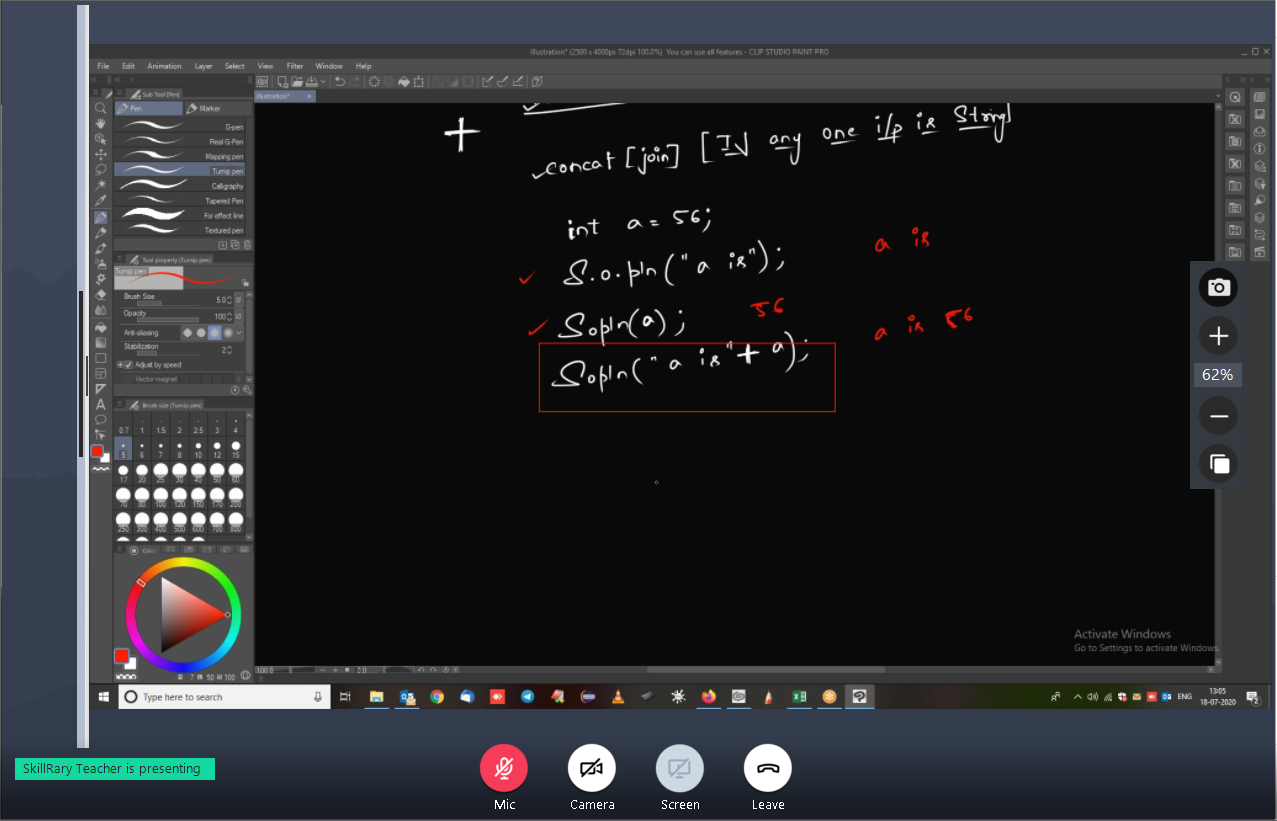 Illustration* (2500 x 4000px 72dpi 100.0%) You can use all features - CLIP STUDIO PAINT PRO
File Edit Animation Layer Select View Filter Window Help
Sub Tool [Pen]
Illustration*
Pen Marker
G-pen
Real G-Pen
Mapping pen
Turnip pen
Calligraphy
Tapered Pen
For effect line
Textured pen
Tool property (Turnip pen)
Turnip pen
Brush Size 5.0
Opacity 100
Anti-aliasing
Stabilization 2
Adjust by speed
Vector magnet
Brush size (Turnip pen)
0.7 1 1.5 2 2.5 3 4
5 6 7 8 10 12 15
17 20 25 30 40 50 60
70 80 100 120 150 170 200
250 300 400 500 600 700 800
Color
7 50 100
+
concat [join] [If any one i/p is String]
int a = 56;
S.o.pln("a is"); a is
Sopln(a); 56
Sopln("a is" + a); a is 56
100.0 0.0
62%
Activate Windows
Go to Settings to activate Windows.
Type here to search
ENG 13:05
18-07-2020
2
SkillRary Teacher is presenting
Mic Camera Screen Leave